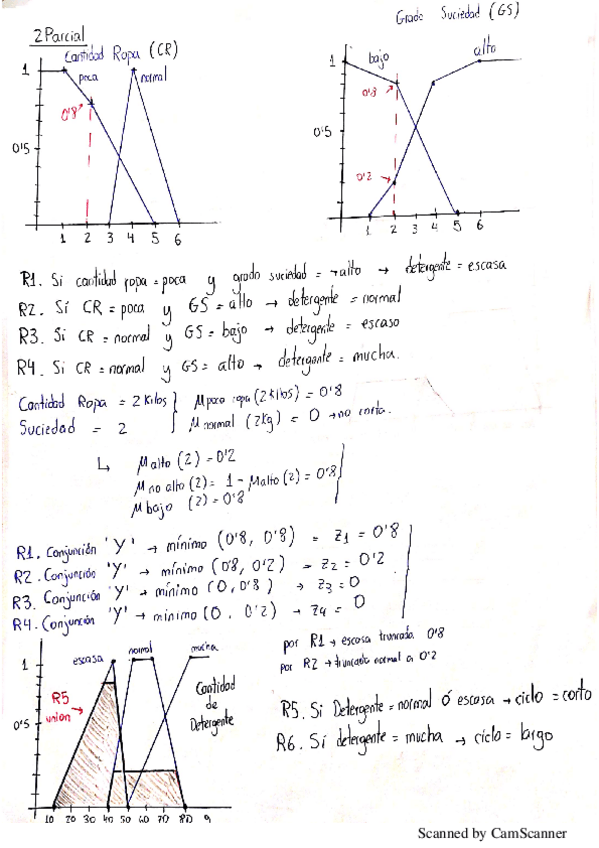 Grado Suciedad (GS)
2 Parcial
Cantidad Ropa (CR)
poca normal
bajo alto
1
0'8
0'5
1 2 3 4 5 6
1
0'8
0'5
0'2
1 2 3 4 5 6
R1. Si cantidad ropa = poca y grado suciedad = ¬alto → detergente = escasa
R2. Sí CR = poca y GS = alto → detergente = normal
R3. Si CR = normal y GS = bajo → detergente = escaso
R4. Si CR = normal y GS = alto → detergente = mucha.
Cantidad Ropa = 2 Kilos } μ poca ropa (2 Kilos) = 0'8
Suciedad = 2 } μ normal (2Kg) = 0 → no corta.
↳ μ alto (2) = 0'2
μ no alto (2) = 1 - μ alto (2) = 0'8
μ bajo (2) = 0'8
R1. Conjunción 'Y' → mínimo (0'8, 0'8) = Z1 = 0'8
R2. Conjunción 'Y' → mínimo (0'8, 0'2) → Z2 = 0'2
R3. Conjunción 'Y' → mínimo (0, 0'8) → Z3 = 0
R4. Conjunción 'Y' → mínimo (0, 0'2) → Z4 = 0
por R1 → escasa truncada 0'8
por R2 → truncada normal a 0'2
escasa normal mucha
1
R5 union
Cantidad de Detergente
0'5
10 20 30 40 50 60 70 80 9
R5. Si Detergente = normal ó escasa → ciclo = corto
R6. Sí detergente = mucha → ciclo = largo
Scanned by CamScanner